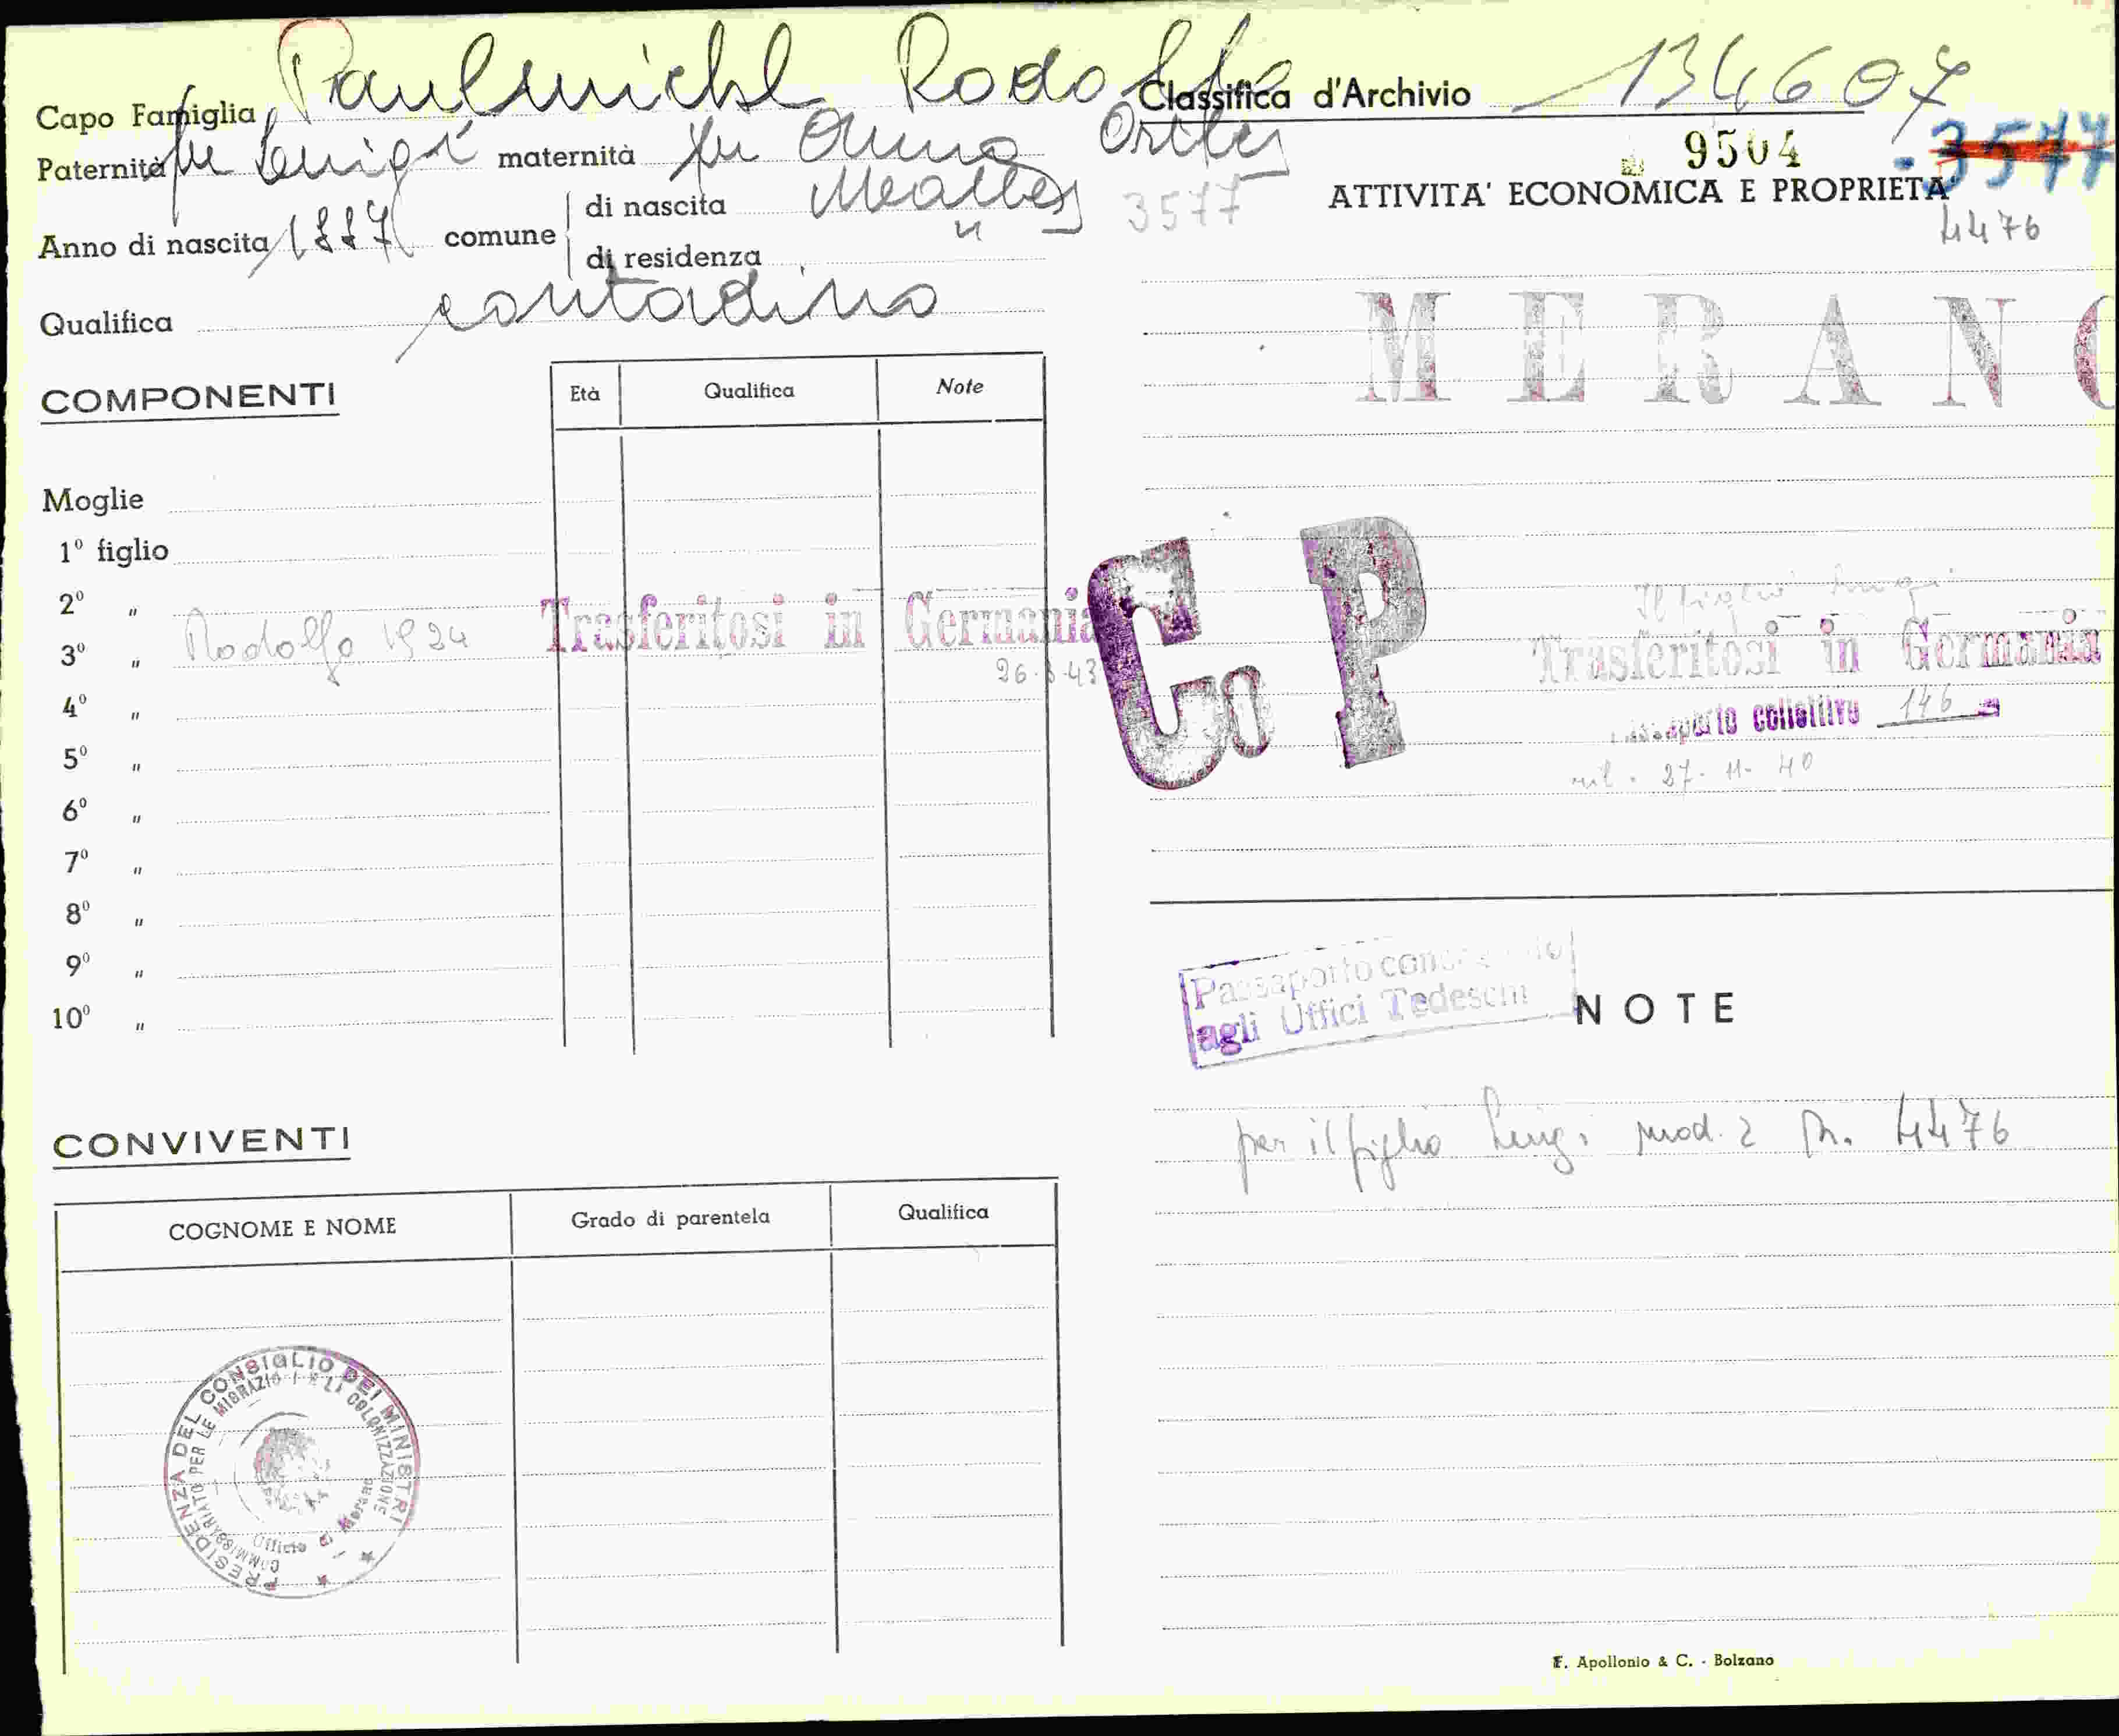 Capo Famiglia Paulmichl Rodolfo
Paternità fu Luigi maternità fu Anna
Anno di nascita 1887 comune di nascita Malles
di residenza "
Qualifica contadino
COMPONENTI
Età Qualifica Note
Moglie
1º figlio
2º "
3º " Rodolfo 1924 Trasferitosi in Germania
26-3-43
4º "
5º "
6º "
7º "
8º "
9º "
10º "
CONVIVENTI
COGNOME E NOME Grado di parentela Qualifica
PRESIDENZA DEL CONSIGLIO DEI MINISTRI
COMMISSARIATO PER LE MIGRAZIONI E LA COLONIZZAZIONE
Ufficio di Merano
Classifica d'Archivio 134607
9504 3577
3577
ATTIVITA' ECONOMICA E PROPRIETA'
4476
MERANO
Co P
Il figlio Luigi
Trasferitosi in Germania
passaporto collettivo 146
27-11-40
Passaporto consegnato
agli Uffici Tedeschi
NOTE
per il figlio Luigi mod. 2 n. 4476
F. Apollonio & C. - Bolzano